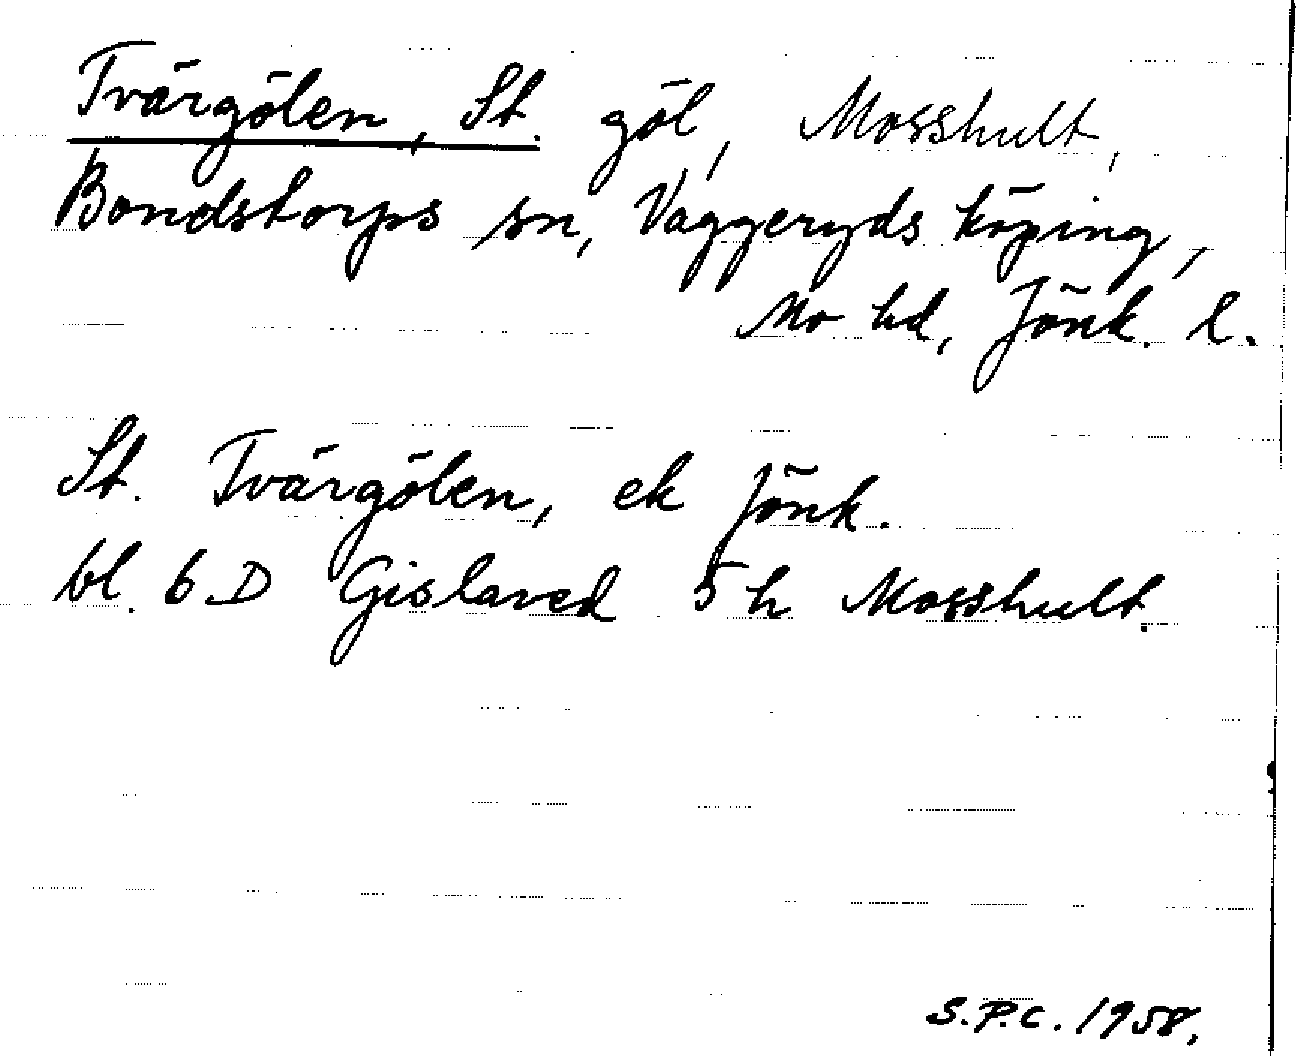 Tvärgölen, St. göl, Mosshult,
Bondstorps sn, Vaggeryds köping,
Mo hd, Jönk. l.
St. Tvärgölen, ek Jönk.
bl. 6 D Gislaved 5 h Mosshult.
S.P.C. 1958,